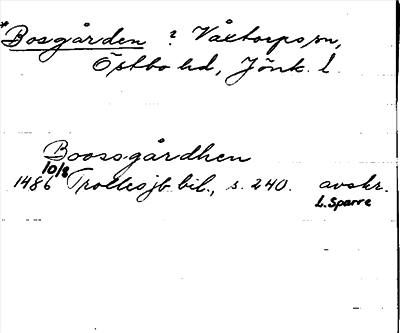 *Bosgården ? Våxtorps sn,
Östbo hd, Jönk. l.
Boossgårdhen
10/8
1486 Trollesjb. bil., s. 240. avskr.
L. Sparre